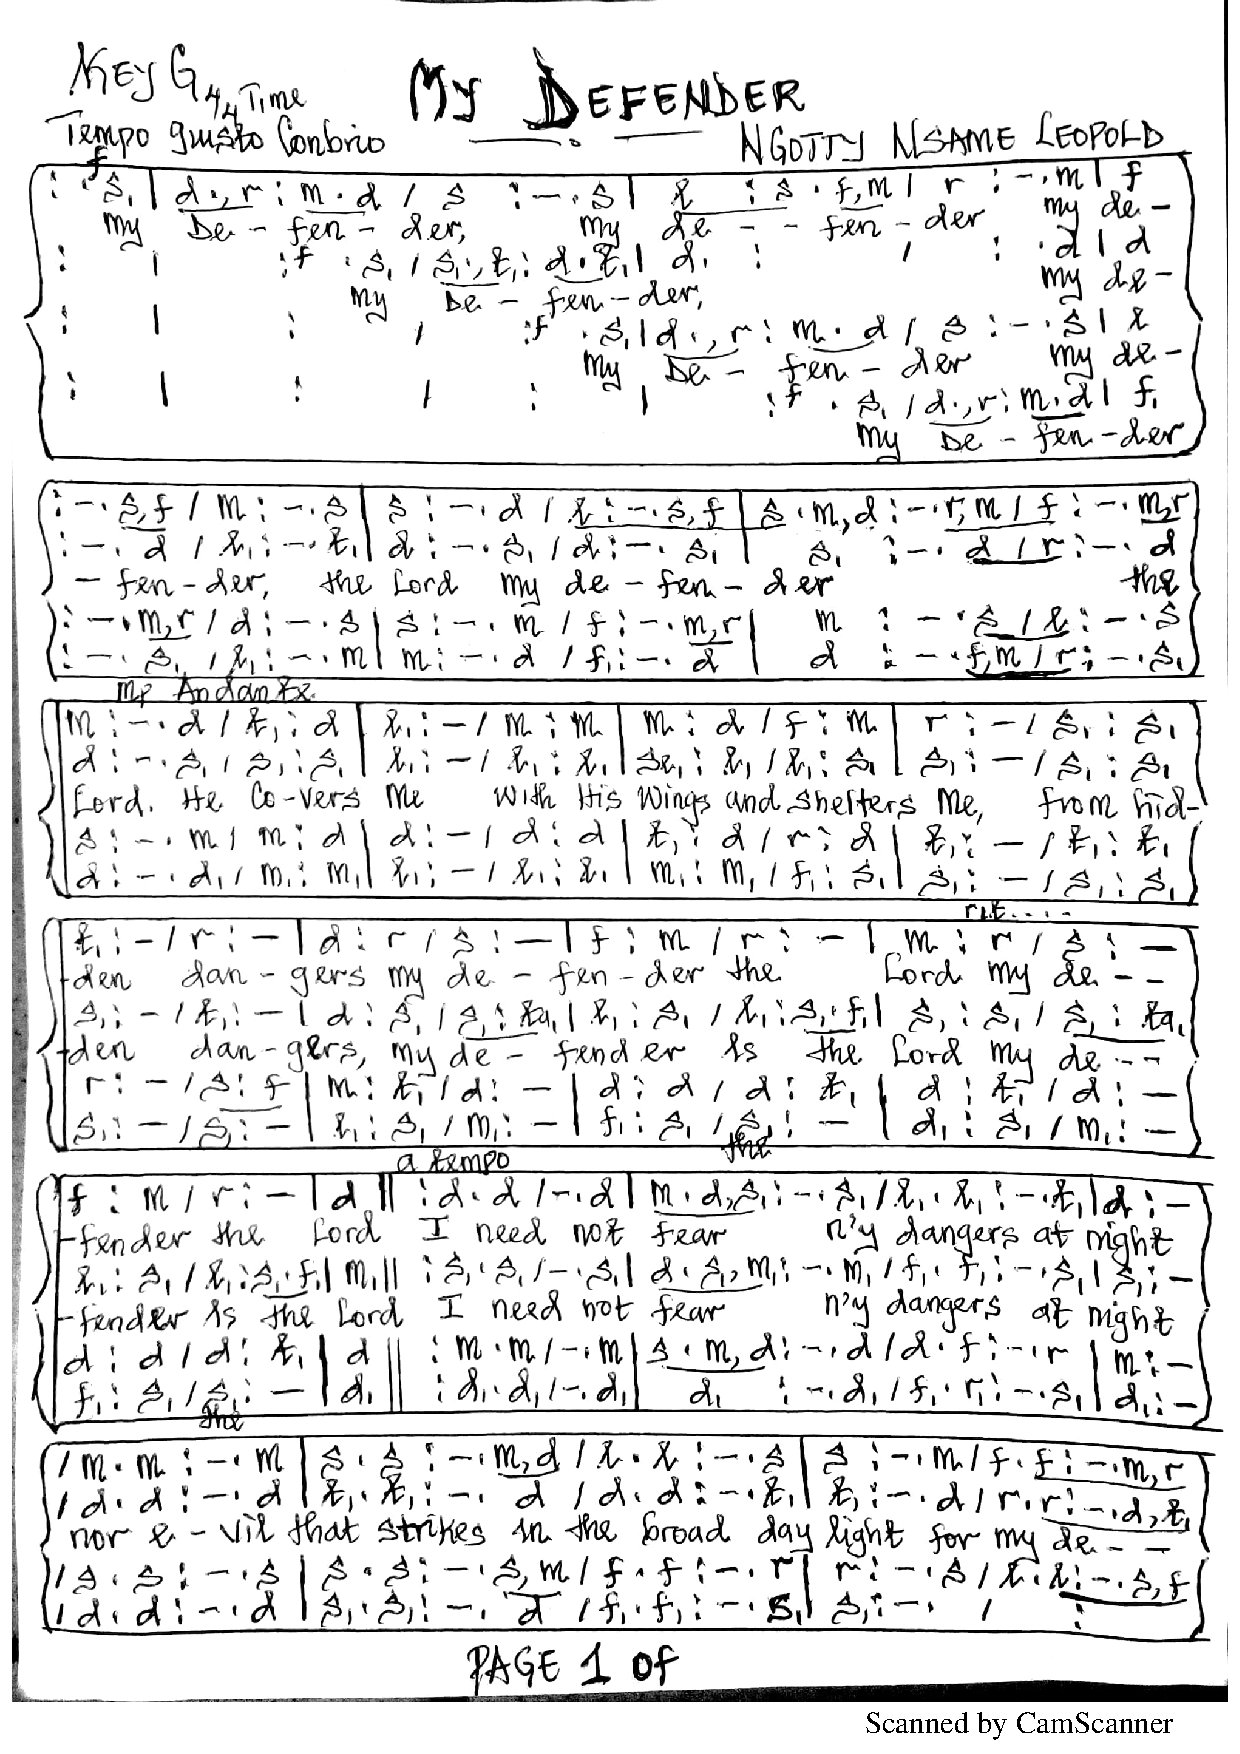 KEY G 4/4 Time
MY DEFENDER
Tempo giusto Conbrio
NGOTTY NSAME LEOPOLD
f
: · s₁ | d · , r : m · d / s : – · s | l : s · f , m / r : – · m | f
My De - fen - der, my de - - fen - der my de -
: | : f · s₁ / s₁ · , t₁ : d · t₁ | d₁ : / : · d | d
my De - fen - der, my de -
: | : / : f · s₁ | d · , r : m · d / s : – · s | l
My De - fen - der my de -
: | : / : | : f · s₁ / d · , r : m · d | f₁
My De - fen - der
: – · s , f / m : – · s | s : – · d / l : – · s , f | s · m , d : – · r , m / f : – · m , r
: – · d / l₁ : – · t₁ | d : – · s₁ / d : – · s₁ | s₁ : – · d / r : – · d
- fen - der, the Lord my de - fen - der the
: – · m , r / d : – · s | s : – · m / f : – · m , r | m : – · s / l : – · s
: – · s₁ / l₁ : – · m | m : – · d / f₁ : – · d | d : – · f , m / r : – · s₁
mp Andante
m : – · d / t₁ : d | l₁ : – / m : m | m : d / f : m | r : – / s₁ : s₁
d : – · s₁ / s₁ : s₁ | l₁ : – / l₁ : l₁ | se₁ : l₁ / l₁ : s₁ | s₁ : – / s₁ : s₁
Lord. He Co-vers Me with His Wings and Shelters Me, from hid-
s : – · m / m : d | d : – / d : d | t₁ : d / r : d | t₁ : – / t₁ : t₁
d : – · d₁ / m₁ : m₁ | l₁ : – / l₁ : l₁ | m₁ : m₁ / f₁ : s₁ | s₁ : – / s₁ : s₁
rit....
t₁ : – / r : – | d : r / s : – | f : m / r : – | m : r / s : –
-den dan - gers my de - fen - der the Lord my de - -
s₁ : – / t₁ : – | d : s₁ / s₁ : ta₁ | l₁ : s₁ / l₁ : s₁ · f₁ | s₁ : s₁ / s₁ : ta₁
-den dan - gers, my de - fender is the Lord my de - -
r : – / s : f | m : t₁ / d : – | d : d / d : t₁ | d : t₁ / d : –
s₁ : – / s₁ : – | l₁ : s₁ / m₁ : – | f₁ : s₁ / s₁ : – | d₁ : s₁ / m₁ : –
the
a tempo
f : m / r : – | d || : d · d / – · d | m · d , s₁ : – · s₁ / l₁ · l₁ : – · t₁ | d : –
-fender the Lord I need not fear n'y dangers at night
l₁ : s₁ / l₁ : s₁ · f₁ | m₁ || : s₁ · s₁ / – · s₁ | d · s₁ , m₁ : – · m₁ / f₁ · f₁ : – · s₁ | s₁ : –
-fender is the Lord I need not fear n'y dangers at night
d : d / d : t₁ | d || : m · m / – · m | s · m , d : – · d / d · f : – · r | m : –
f₁ : s₁ / s₁ : – | d₁ || : d₁ · d₁ / – · d₁ | d₁ : – · d₁ / f₁ · r₁ : – · s₁ | d₁ : –
the
/ m · m : – · m | s · s : – · m , d / l · l : – · s | s : – · m / f · f : – · m , r
/ d · d : – · d | t₁ · t₁ : – · d / d · d : – · t₁ | t₁ : – · d / r · r : – · d , t₁
nor e - vil that strikes in the broad day light for my de - -
/ s · s : – · s | s · s : – · s , m / f · f : – · r | r : – · s / l · l : – · s , f
/ d · d : – · d | s₁ · s₁ : – · d / f₁ · f₁ : – · s₁ | s₁ : – · / :
PAGE 1 OF
Scanned by CamScanner